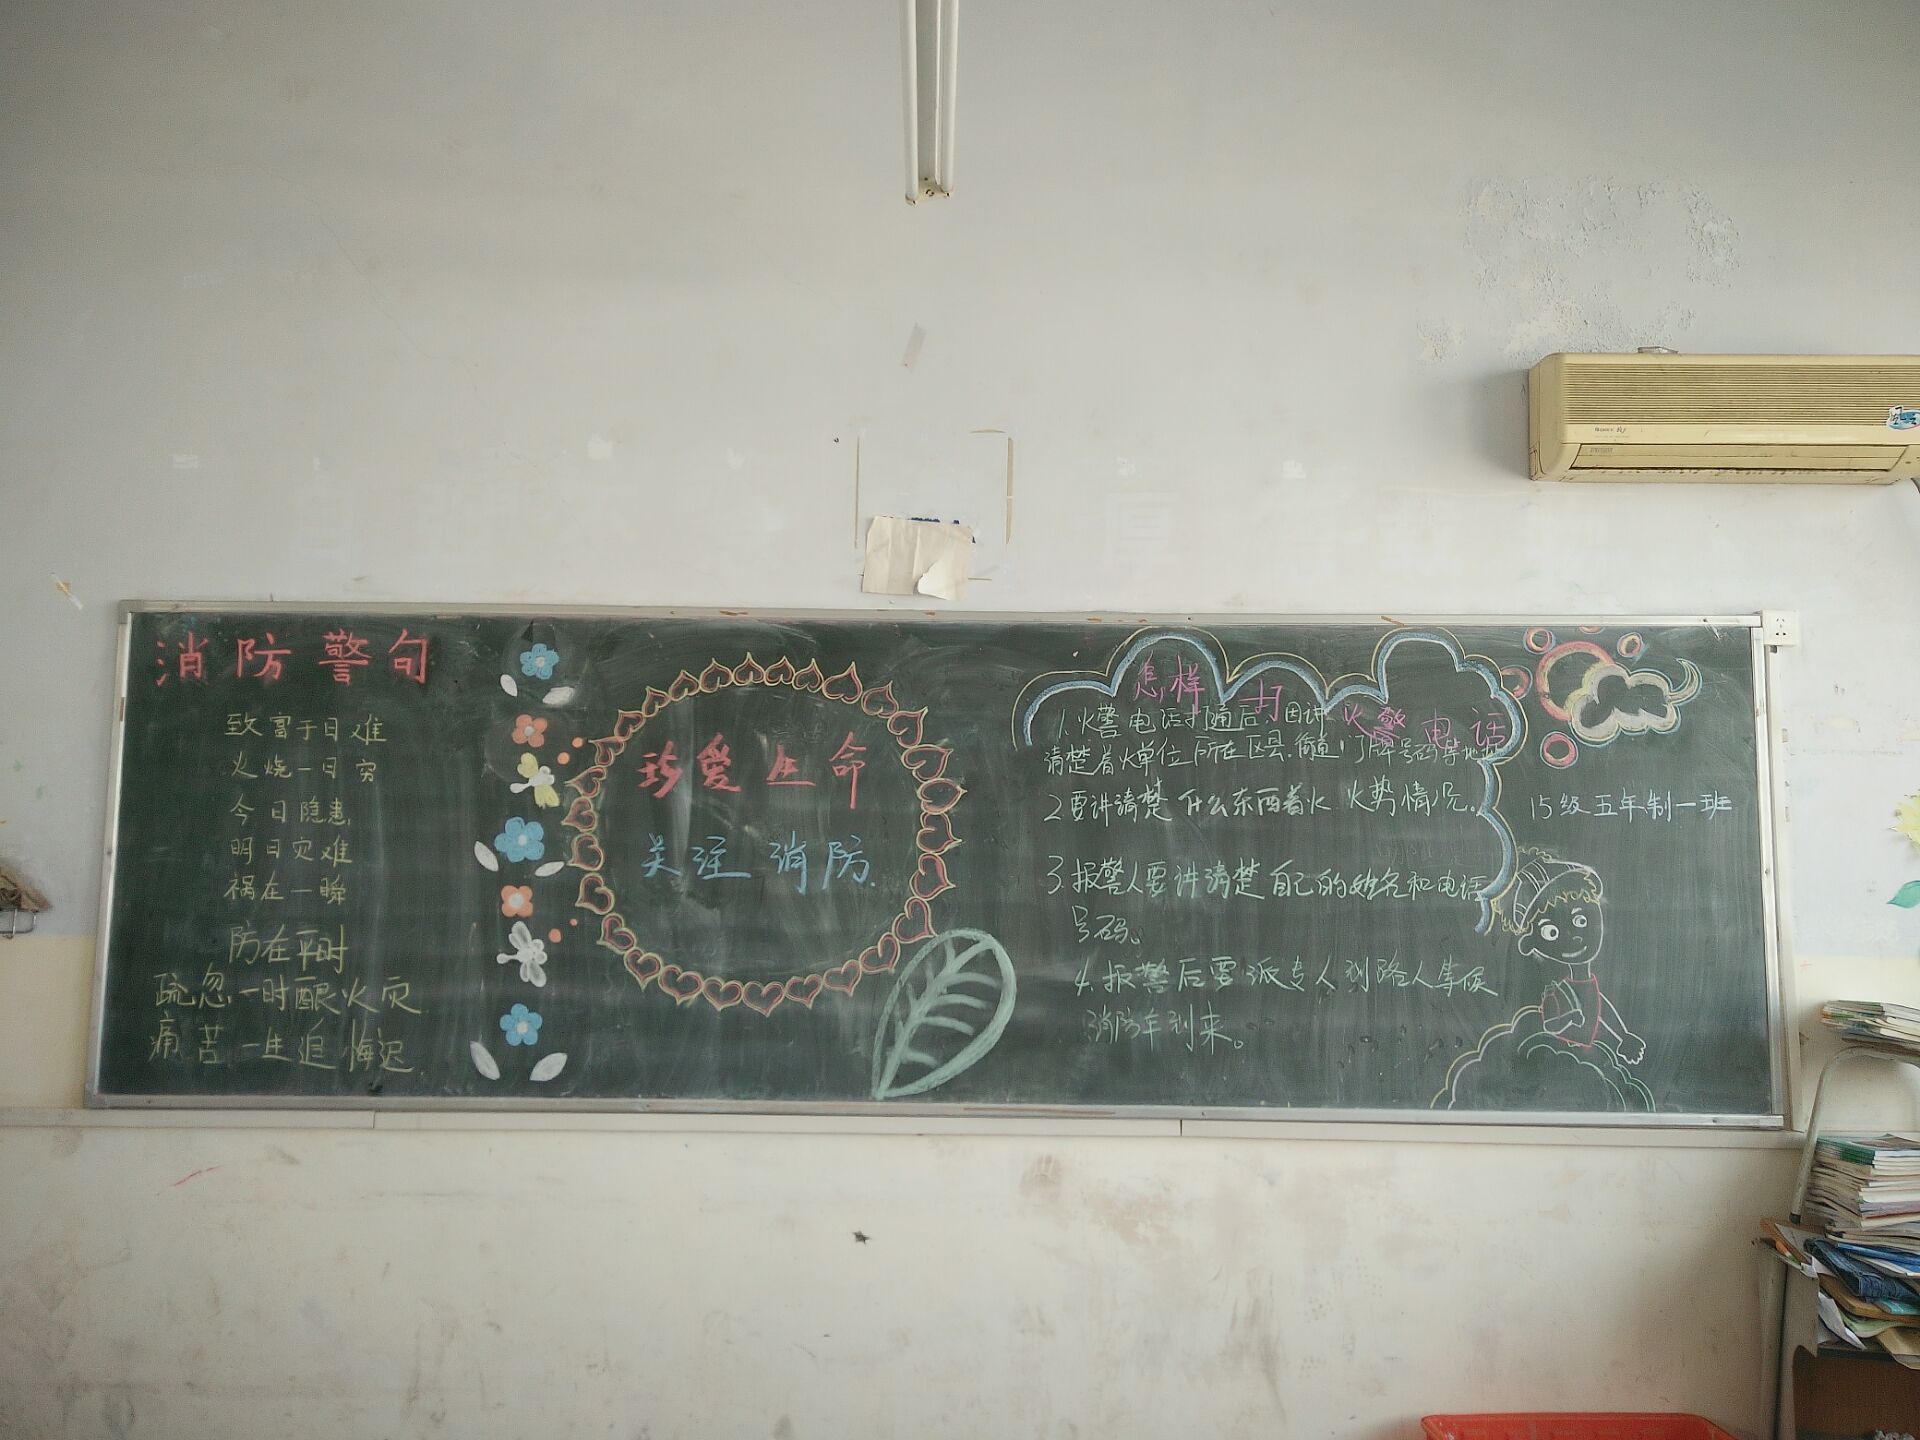 消防警句
致富于日难
火烧一日穷
今日隐患
明日灾难
祸在一瞬
防在平时
疏忽一时酿火灾
痛苦一生追悔迟
珍爱生命
关注消防.
怎样打火警电话
1.火警电话打通后,因讲
清楚着火单位 所在区县.街道 门牌号码等地址
2要讲清楚什么东西着火 火势情况。
3.报警人要讲清楚自己的姓名和电话
号码。
4.报警后要派专人到路人等候
消防车到来。
15级五年制一班